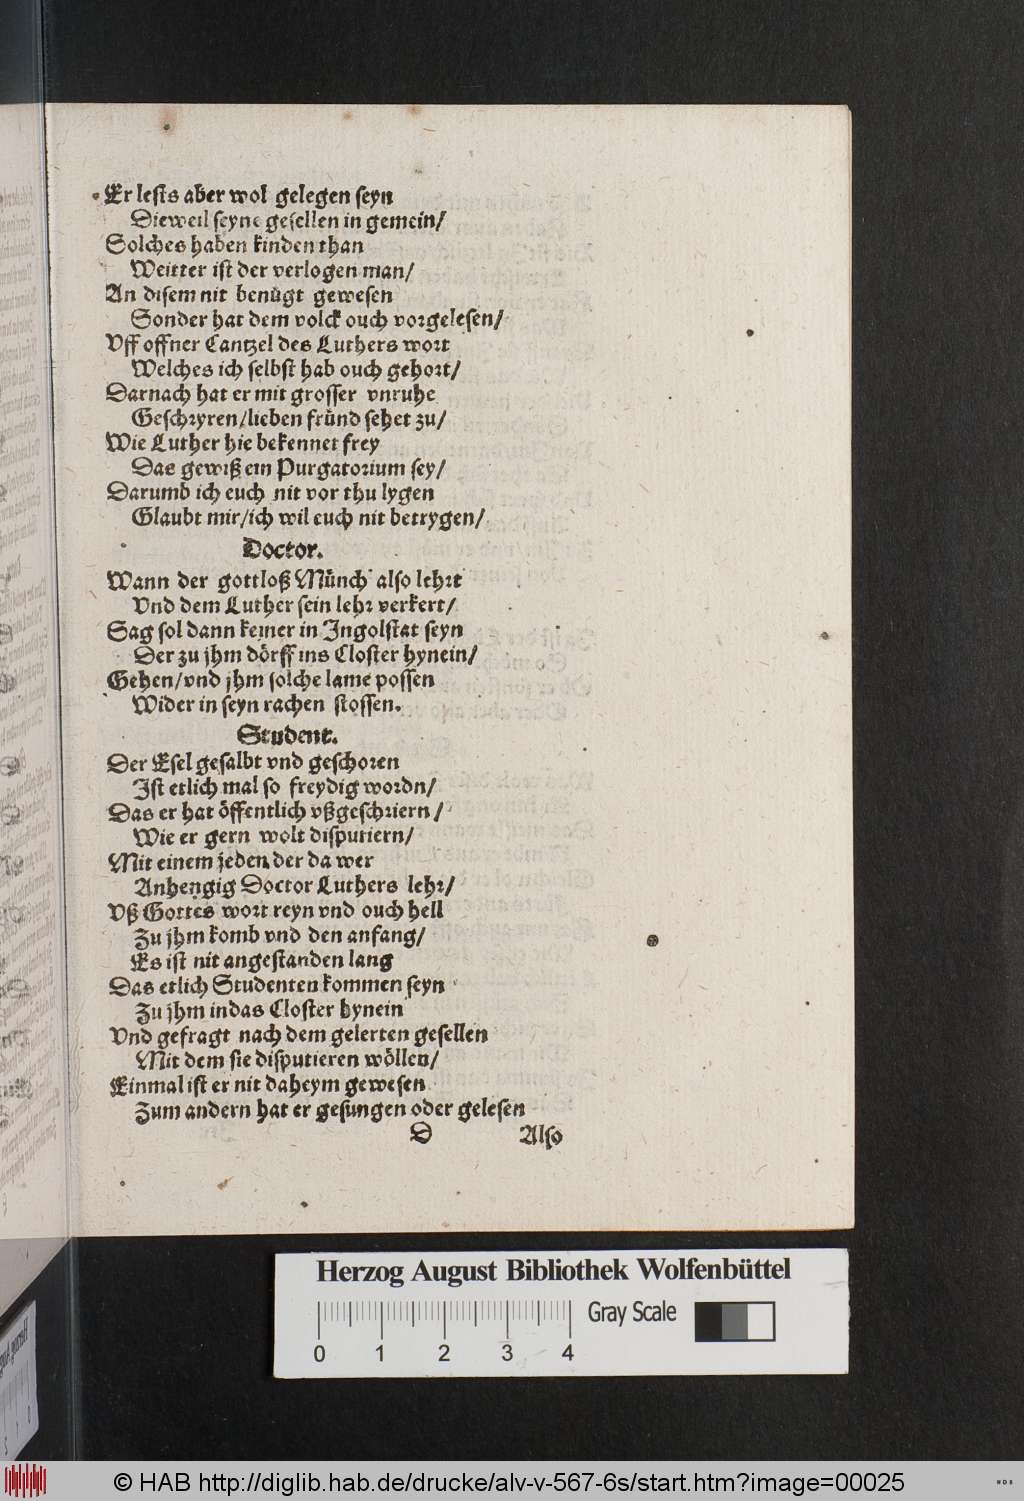 Er lests aber wol gelegen seyn
Dieweil seyne gesellen in gemein/
Solches haben kinden than
Weitter ist der verlogen man/
An disem nit benügt gewesen
Sonder hat dem volck ouch vorgelesen/
Uff offner Cantzel des Luthers wort
Welches ich selbst hab ouch gehort/
Darnach hat er mit grosser vnruhe
Geschryren/lieben fründ sehet zu/
Wie Luther hie bekennet frey
Das gewiß ein Purgatorium sey/
Darumb ich euch nit vor thu lygen
Glaubt mir/ich wil euch nit betrygen/
Doctor.
Wann der gottloß Münch also lehrt
Vnd dem Luther sein lehr verkert/
Sag sol dann keiner in Ingolstat seyn
Der zu jhm dörff ins Closter hynein/
Gehen/vnd jhm solche lame possen
Wider in seyn rachen stossen.
Student.
Der Esel gesalbt vnd geschoren
Ist etlich mal so freydig wordn/
Das er hat öffentlich vßgeschriern/
Wie er gern wolt disputiern/
Mit einem jeden der da wer
Anhengig Doctor Luthers lehr/
Vß Gottes wort reyn vnd ouch hell
Zu jhm komb vnd den anfang/
Es ist nit angestanden lang
Das etlich Studenten kommen seyn
Zu jhm indas Closter hynein
Vnd gefragt nach dem gelerten gesellen
Mit dem sie disputieren wöllen/
Einmal ist er nit daheym gewesen
Zum andern hat er gesungen oder gelesen
D Also
Herzog August Bibliothek Wolfenbüttel
Gray Scale
0 1 2 3 4
© HAB http://diglib.hab.de/drucke/alv-v-567-6s/start.htm?image=00025